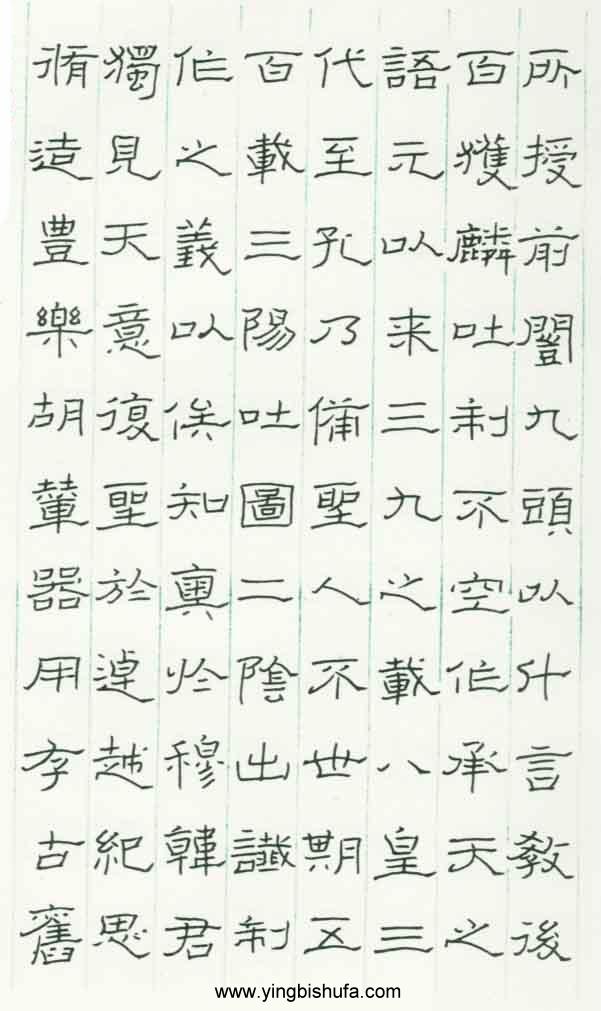 所授前闓九頭以什言教後
百獲麟吐制不空作承天之
語元以来三九之載八皇三
代至孔乃備聖人不世期五
百載三陽吐圖二陰出讖制
作之義以俟知奧於穆韓君
獨見天意復聖於逴越紀思
脩造豊樂胡輦器用存古舊
www.yingbishufa.com